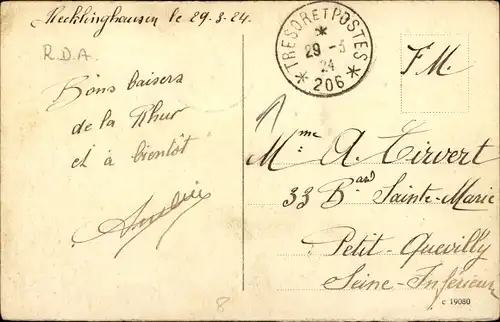 Recklinghausen le 29-3-24.
R.D.A.
Bons baisers
de la Rhur
et à bientôt
TRESOR ET POSTES
* 29-3 *
24
206
F.M.
Mme A. Tirvert
33 Bard Sainte-Marie
Petit-Quevilly
Seine-Inférieure
8
c 19080